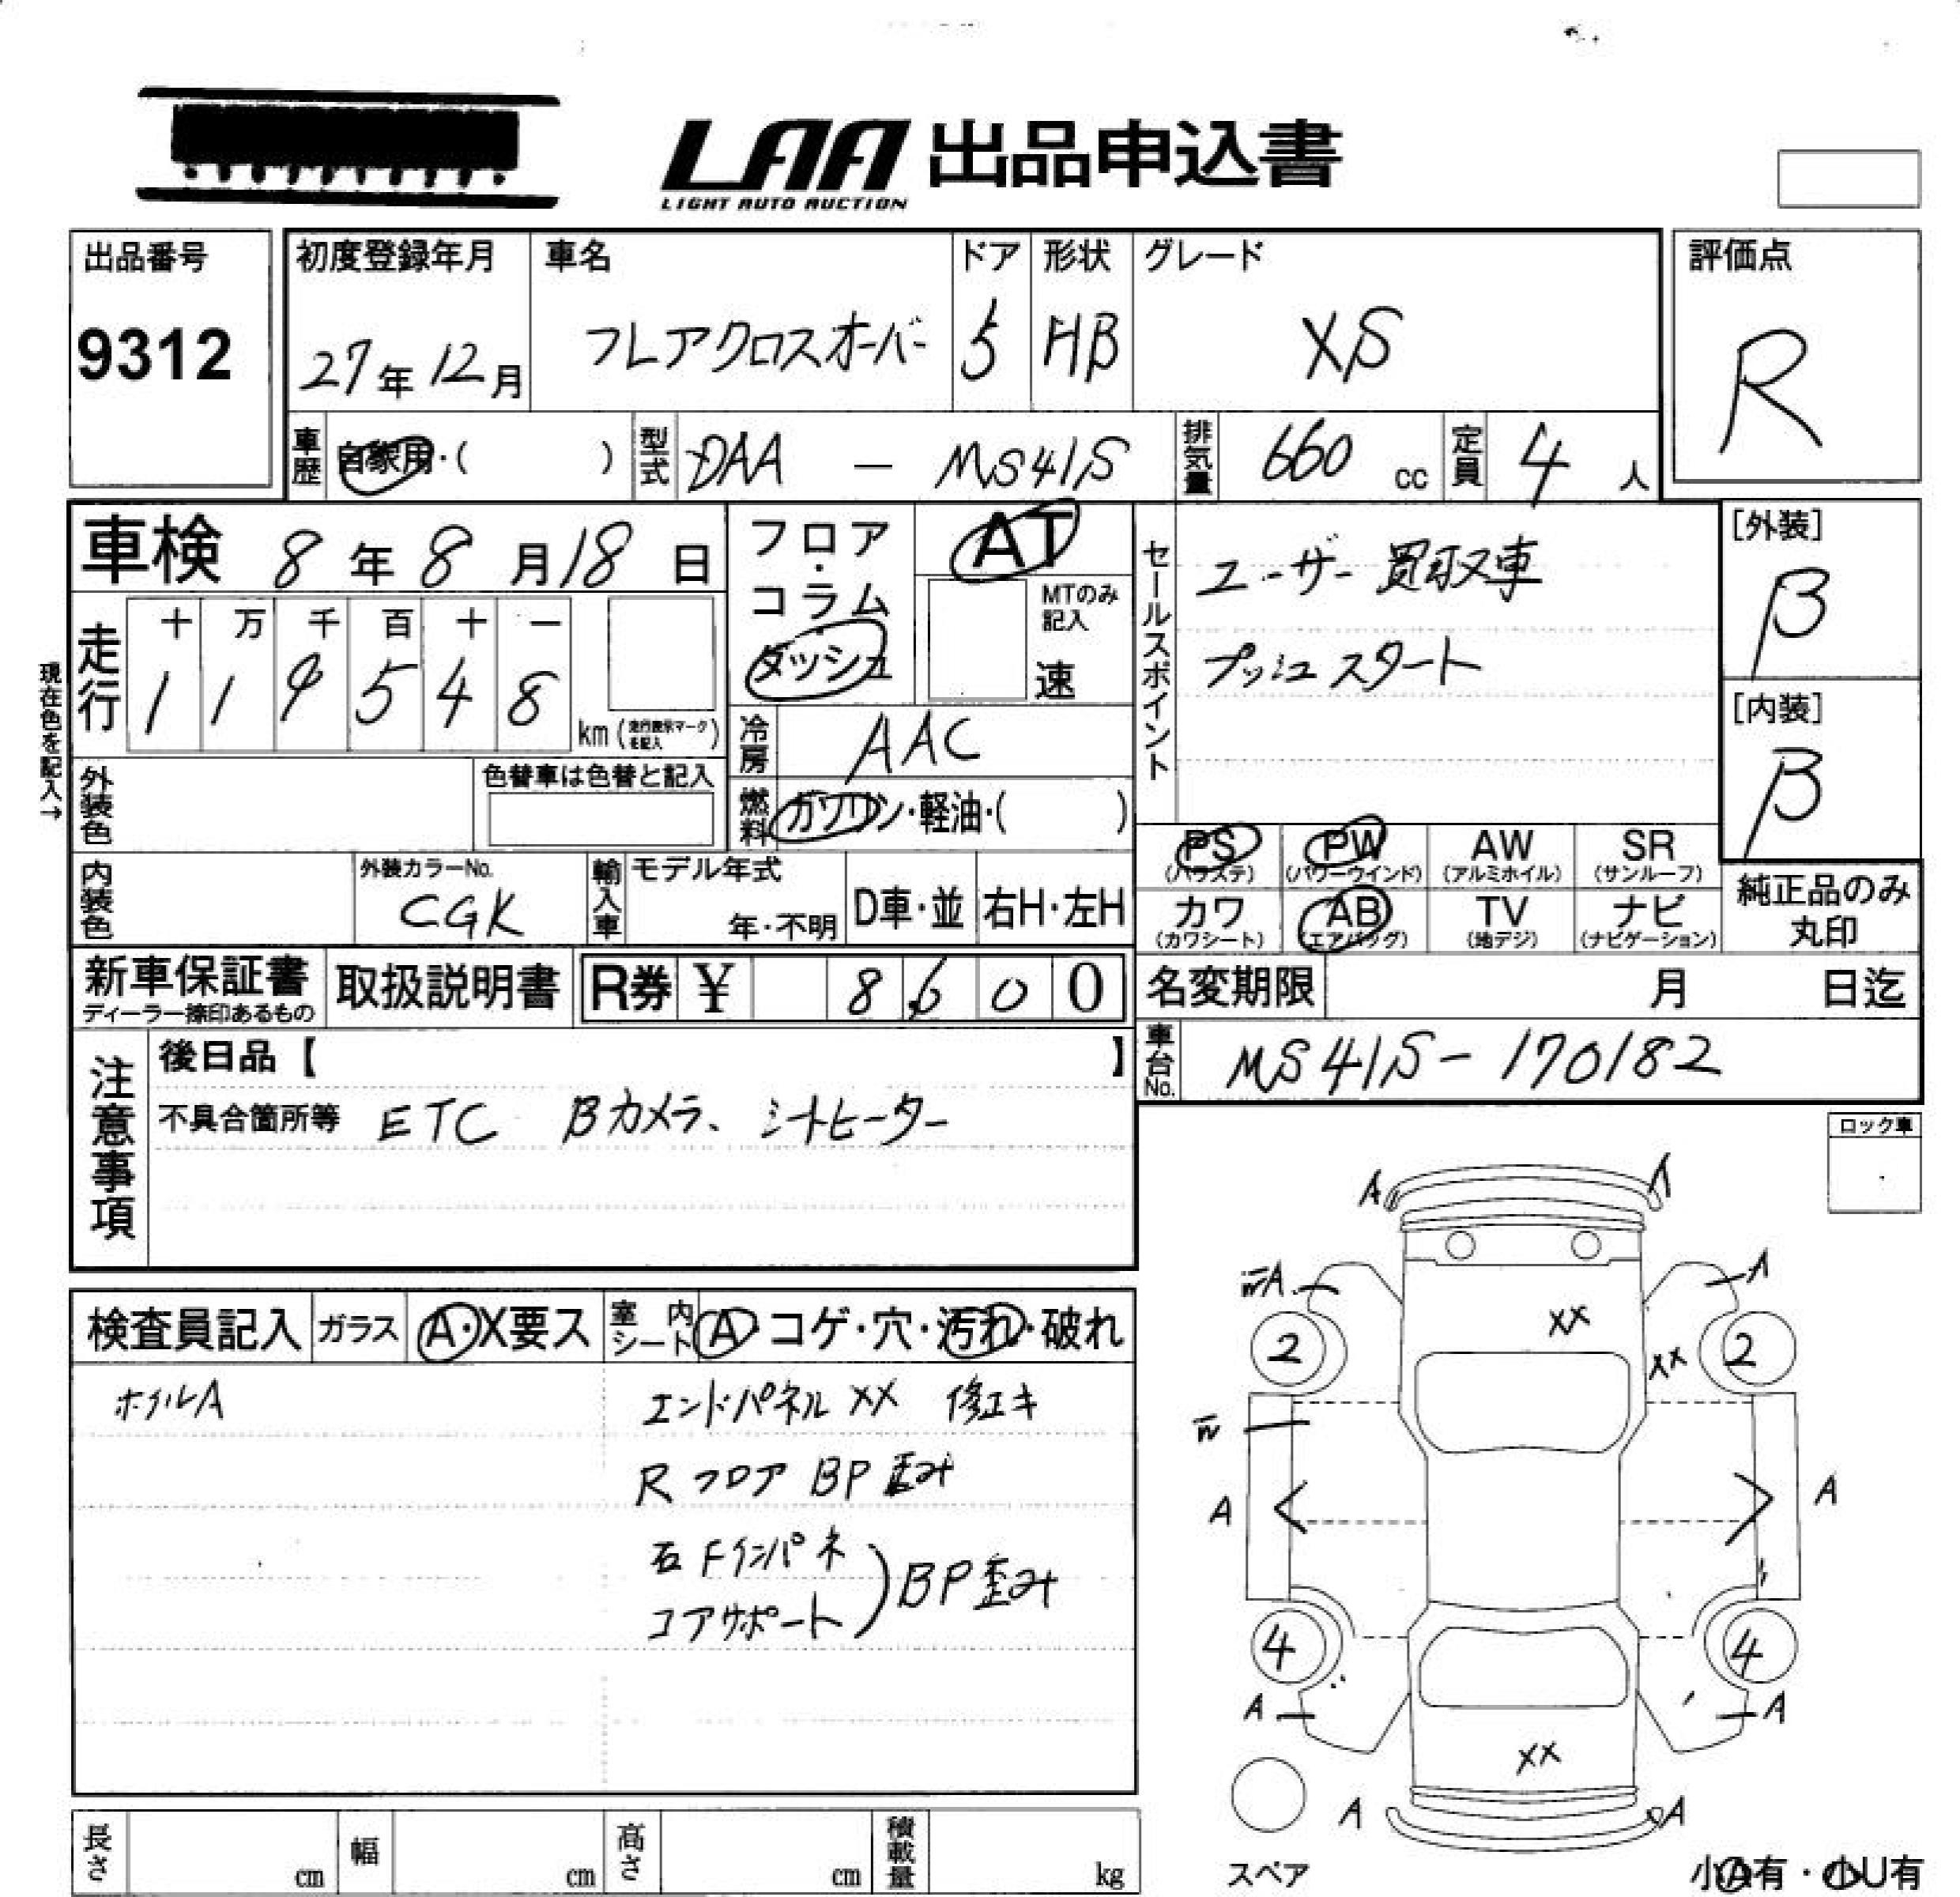 LAA 出品申込書
LIGHT AUTO AUCTION
出品番号
9312
初度登録年月
27年12月
車名
フレアクロスオーバー
ドア
5
形状
HB
グレード
XS
評価点
R
車歴
自家用・( )
型式
DAA - MS41S
排気量
660 cc
定員
4 人
車検 8年8月18日
フロア・コラム・ダッシュ
AT
MTのみ記入
速
セールスポイント
ユーザー買取車
プッシュスタート
[外装]
B
[内装]
B
現在色を記入→
走行
十 万 千 百 十 一
1 1 9 5 4 8
km (走行表示マークを記入)
冷房
AAC
外装色
色替車は色替と記入
燃料
ガソリン・軽油・( )
PS (パワステ)
PW (パワーウインド)
AW (アルミホイル)
SR (サンルーフ)
カワ (カワシート)
AB (エアバッグ)
TV (地デジ)
ナビ (ナビゲーション)
純正品のみ丸印
内装色
外装カラーNo.
CGK
輸入車
モデル年式
年・不明
D車・並
右H・左H
新車保証書
ディーラー捺印あるもの
取扱説明書
R券 ¥ 8 6 0 0
名変期限 月 日迄
車台No.
MS41S-170182
注意事項
後日品【 】
不具合箇所等 ETC Bカメラ、シートヒーター
ロック車
検査員記入
ガラス
A・X要ス
室内シート
A・コゲ・穴・汚れ・破れ
ホイルA
エンドパネル XX 修正キ
Rフロア BP歪み
右Fインパネ
コアサポート
BP歪み
A
A
A
XX
XX
2
2
A
A
4
4
A
A
XX
A
A
スペア
小A有・小U有
長さ cm
幅 cm
高さ cm
積載量 kg